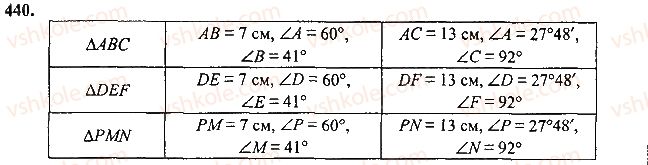 440.
ΔABC
AB = 7 см, ∠A = 60°,
∠B = 41°
AC = 13 см, ∠A = 27°48′,
∠C = 92°
ΔDEF
DE = 7 см, ∠D = 60°,
∠E = 41°
DF = 13 см, ∠D = 27°48′,
∠F = 92°
ΔPMN
PM = 7 см, ∠P = 60°,
∠M = 41°
PN = 13 см, ∠P = 27°48′,
∠N = 92°